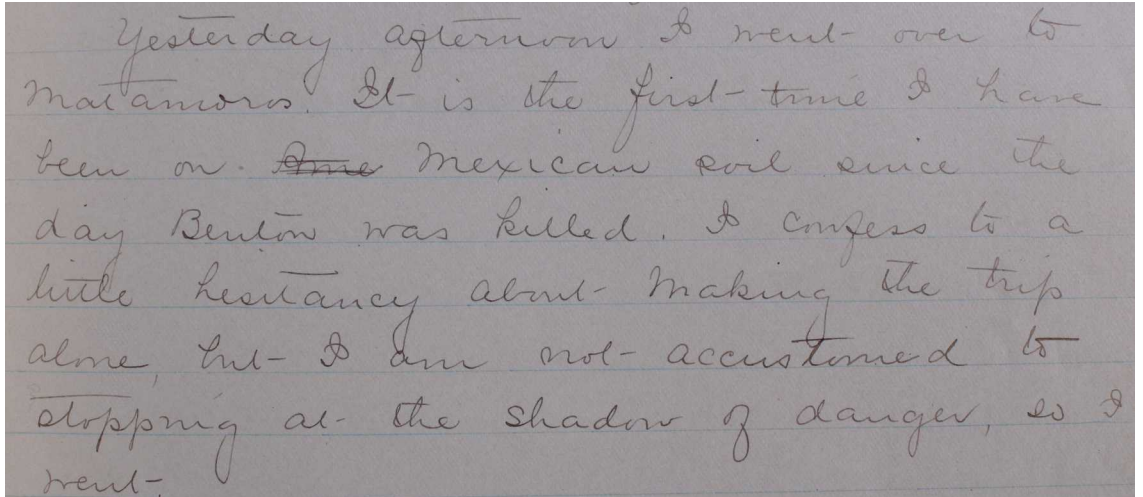 Yesterday afternoon I went over to
Matamoros. It is the first time I have
been on Ame Mexican soil since the
day Benton was killed. I confess to a
little hesitancy about making the trip
alone, but I am not accustomed to
stopping at the shadow of danger, so I
went.